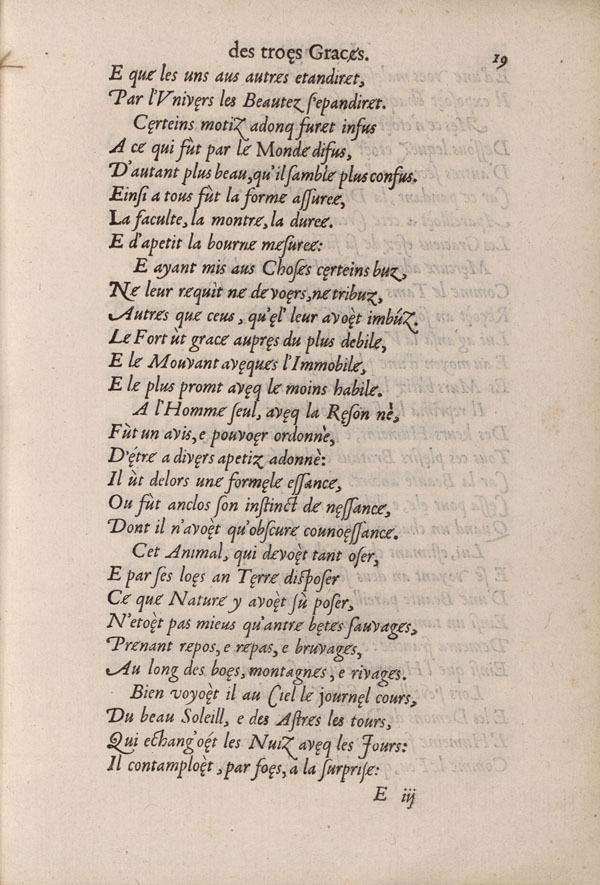 des troęs Graces.
19
E que les uns aus autres etandiret,
Par l'Vnivęrs les Beautez s'epandiret.
Cęrteins motiz adonq furet infus
A ce qui fùt par le Monde difus,
D'autant plus beau, qu'il samble plus confus.
Einsi a tous fùt la forme assuree,
La faculte, la montre, la duree.
E d'apetit la bourne mesuree:
E ayant mis aus Choses cęrteins buz,
Ne leur requìt ne devoęrs, ne tribuz,
Autres que ceus, qu'ęl' leur avoęt imbúz.
Le Fort ùt grace aupręs du plus debile,
E le Mouvant avęques l'Immobile,
E le plus promt avęq le moins habile.
A l'Homme seul, avęq la Ręson nè,
Fùt un avis, e pouvoęr ordonnè,
D'ętre a divęrs apetiz adonnè:
Il ùt delors une formęle essance,
Ou fùt anclos son instinct de nęssance,
Dont il n'avoęt qu'obscure counoęssance.
Cet Animal, qui devoęt tant oser,
E par ses loęs an Tęrre disposer
Ce que Nature y avoęt sù poser,
N'etoęt pas mieus qu'antre bętes sauvages,
Prenant repos, e repas, e bruvages,
Au long des boęs, montagnes, e rivages.
Bien voyoęt il au Ciel le journęl cours,
Du beau Soleill, e des Astres les tours,
Qui echang'oęt les Nuiz avęq les Jours:
Il contamploęt, par foęs, a la surprise:
E iij